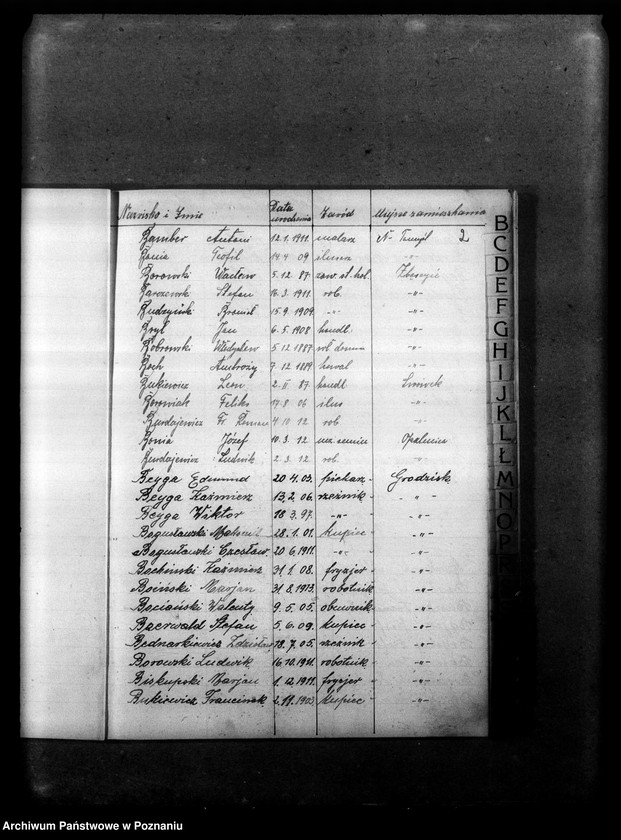 Nazwisko i Imię Data urodzenia Zawód Miejsce zamieszkania
Bamber Antoni 12.1.1911. malarz N-Tomyśl 2
Bania Teofil 14.4 09 -"-
Borowski Wacław 5.12.87. Zbąszyń
Barczewsk Stefan 16.3.1911. rob. -"-
Budzyński Bronisł 15.9.1909. -"- -"-
Bryl Jan 6.5.1908 handl. -"-
Bobrowski Władysław 5.12.1887 -"-
Boch Ambroży 7.12.1889 kowal -"-
Bukiewicz Leon 2.11.87 handl
Borowiak Feliks 17.8.06 ślus -"-
Burdajewicz Fr. 4.10.12 rob -"-
Bania Józef 10.3.12 Opalenica
Burdajewicz Ludwik 2.3.12 rob. -"-
Beyga Edmund 20.4.03. piekarz - Grodzisk
Beyga Kaźmierz 13.2.06. rzeźnik - -"-
Beyga Wiktor 18.3.97. -"- -"-
Bogusławski 28.1.01. kupiec -"-
Bogusławski Czesław. 20.6.1911. -"- -"-
Bochiński Kaźmierz 31.1.08. fryzjer -"-
Boiński Marjan 31.8.1913. robotnik -"-
Bociański Walenty 9.5.05. obuwnik -"-
Baerwald Stefan 5.6.09. kupiec -"-
Bednarkiewicz Zdzisław 18.7.05. rzeźnik -"-
Borowski Ludwik 16.10.1911. robotnik -"-
Biskupski Marjan 1.12.1911. fryzjer -"-
Bukiewicz Franciszek 2.11.1903. kupiec -"-
B
C
D
E
F
G
H
I
J
K
L
Ł
M
N
O
P
Archiwum Państwowe w Poznaniu